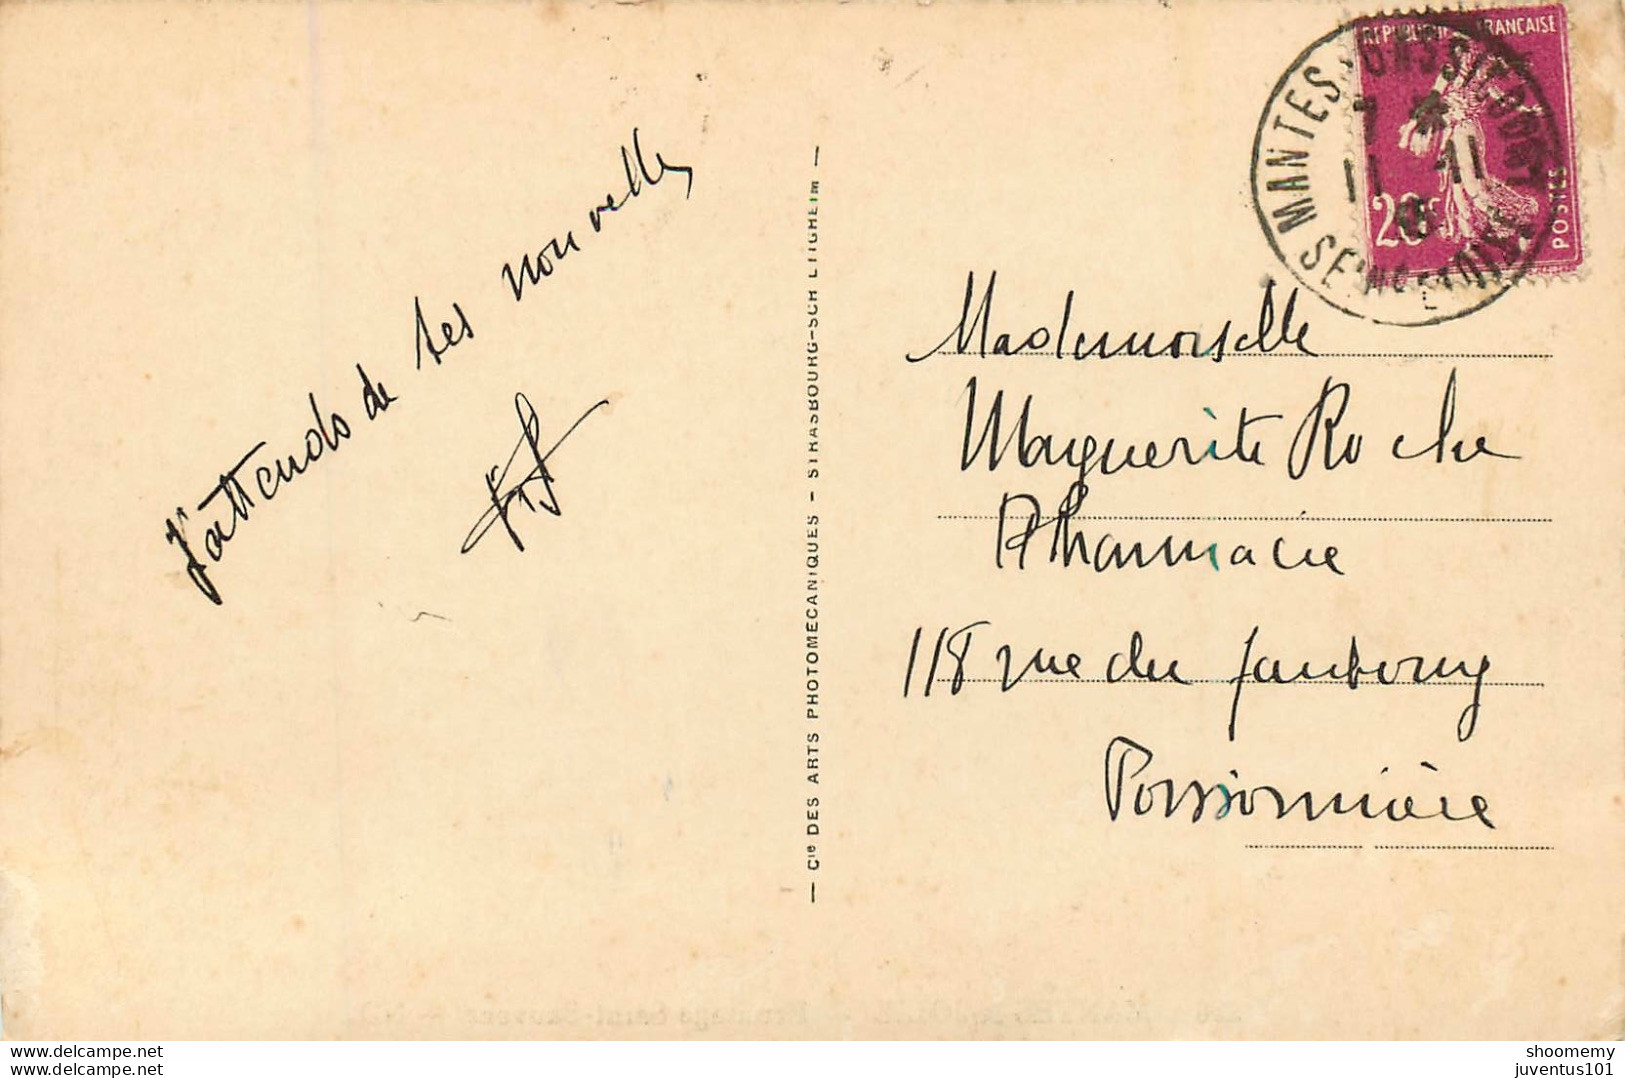 J'attends de tes nouvelles
Mademoiselle
Marguerite Roche
Pharmacie
118 rue du faubourg
Poissonnière
— Cie DES ARTS PHOTOMECANIQUES - STRASBOURG-SCHILTIGHEIM —
REPUBLIQUE FRANÇAISE
20c
POSTES
MANTES-GASSICOURT
7 *
11 -11
SEINE-ET-OISE
shoomemy
juventus101